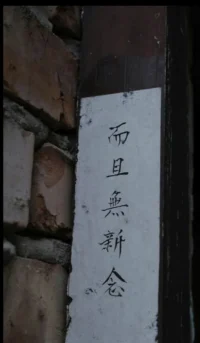 而且無新念